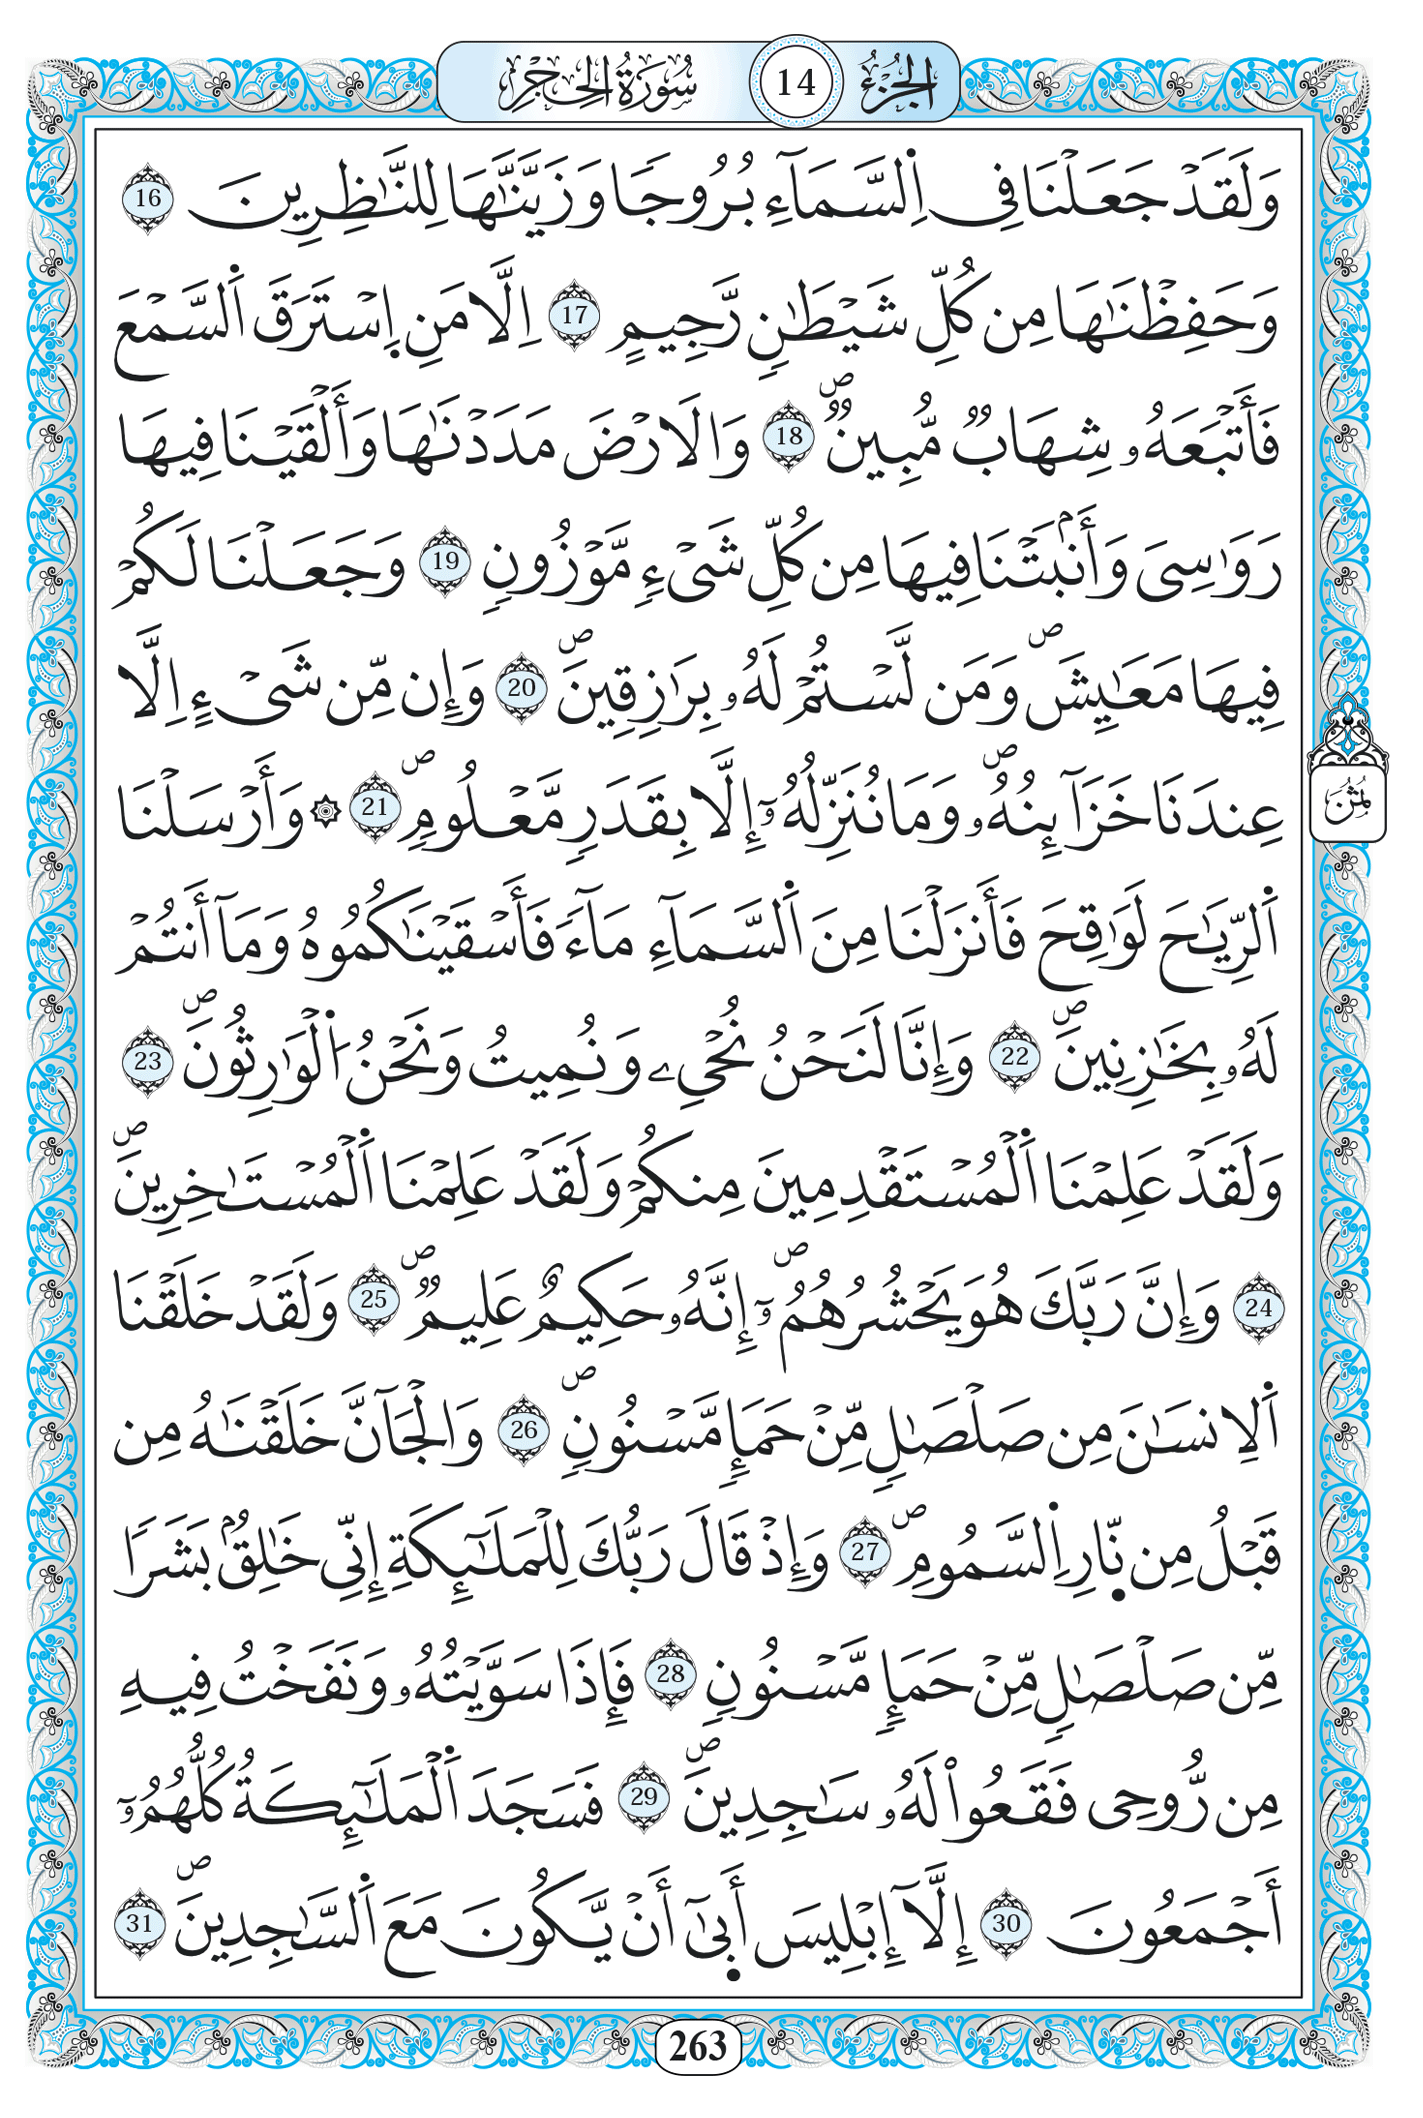 الجُزْءُ 14 سُورَةُ الحِجْرِ
وَلَقَدْ جَعَلْنَا فِے اِ۬لسَّمَآءِ بُرُوجاٗ وَزَيَّنَّٰهَا لِلنَّٰظِرِينَ 16
وَحَفِظْنَٰهَا مِن كُلِّ شَيْطَٰنٖ رَّجِيمٍ 17 اِلَّا مَنِ اِ۪سْتَرَقَ اَ۬لسَّمْعَ
فَأَتْبَعَهُۥ شِهَابٞ مُّبِينٞۖ 18 وَالَارْضَ مَدَدْنَٰهَا وَأَلْقَيْنَا فِيهَا
رَوَٰسِىَ وَأَنۢبَتْنَا فِيهَا مِن كُلِّ شَےْءٖ مَّوْزُونٖ 19 وَجَعَلْنَا لَكُمْ
فِيهَا مَعَٰيِشَۖ وَمَن لَّسْتُمْ لَهُۥ بِرَٰزِقِينَۖ 20 وَإِن مِّن شَےْءٍ اِلَّا
عِندَنَا خَزَآئِنُهُۥۖ وَمَا نُنَزِّلُهُۥٓ إِلَّا بِقَدَرٖ مَّعْلُومٖۖ 21 ۞ وَأَرْسَلْنَا
اَ۬لرِّيَٰحَ لَوَٰقِحَ فَأَنزَلْنَا مِنَ اَ۬لسَّمَآءِ مَآءٗ فَأَسْقَيْنَٰكُمُوهُ وَمَآ أَنتُمْ
لَهُۥ بِخَٰزِنِينَۖ 22 وَإِنَّا لَنَحْنُ نُحْيِۦ وَنُمِيتُ وَنَحْنُ اُ۬لْوَٰرِثُونَۖ 23
وَلَقَدْ عَلِمْنَا اَ۬لْمُسْتَقْدِمِينَ مِنكُمْ وَلَقَدْ عَلِمْنَا اَ۬لْمُسْتَٰخِرِينَۖ
24 وَإِنَّ رَبَّكَ هُوَ يَحْشُرُهُمُۥٓۖ إِنَّهُۥ حَكِيمٌ عَلِيمٞۖ 25 وَلَقَدْ خَلَقْنَا
اَ۬لِانسَٰنَ مِن صَلْصَٰلٖ مِّنْ حَمَإٖ مَّسْنُونٖۖ 26 وَالْجَآنَّ خَلَقْنَٰهُ مِن
قَبْلُ مِن نّ۪ارِ اِ۬لسَّمُومِۖ 27 وَإِذْ قَالَ رَبُّكَ لِلْمَلَٰٓئِكَةِ إِنِّے خَٰلِقُۢ بَشَراٗ
مِّن صَلْصَٰلٖ مِّنْ حَمَإٖ مَّسْنُونٖ 28 فَإِذَا سَوَّيْتُهُۥ وَنَفَخْتُ فِيهِ
مِن رُّوحِے فَقَعُواْ لَهُۥ سَٰجِدِينَۖ 29 فَسَجَدَ اَ۬لْمَلَٰٓئِكَةُ كُلُّهُمُۥٓ
أَجْمَعُونَ 30 إِلَّآ إِبْلِيسَ أَب۪ىٰٓ أَنْ يَّكُونَ مَعَ اَ۬لسَّٰجِدِينَۖ 31
ثُمُن
263